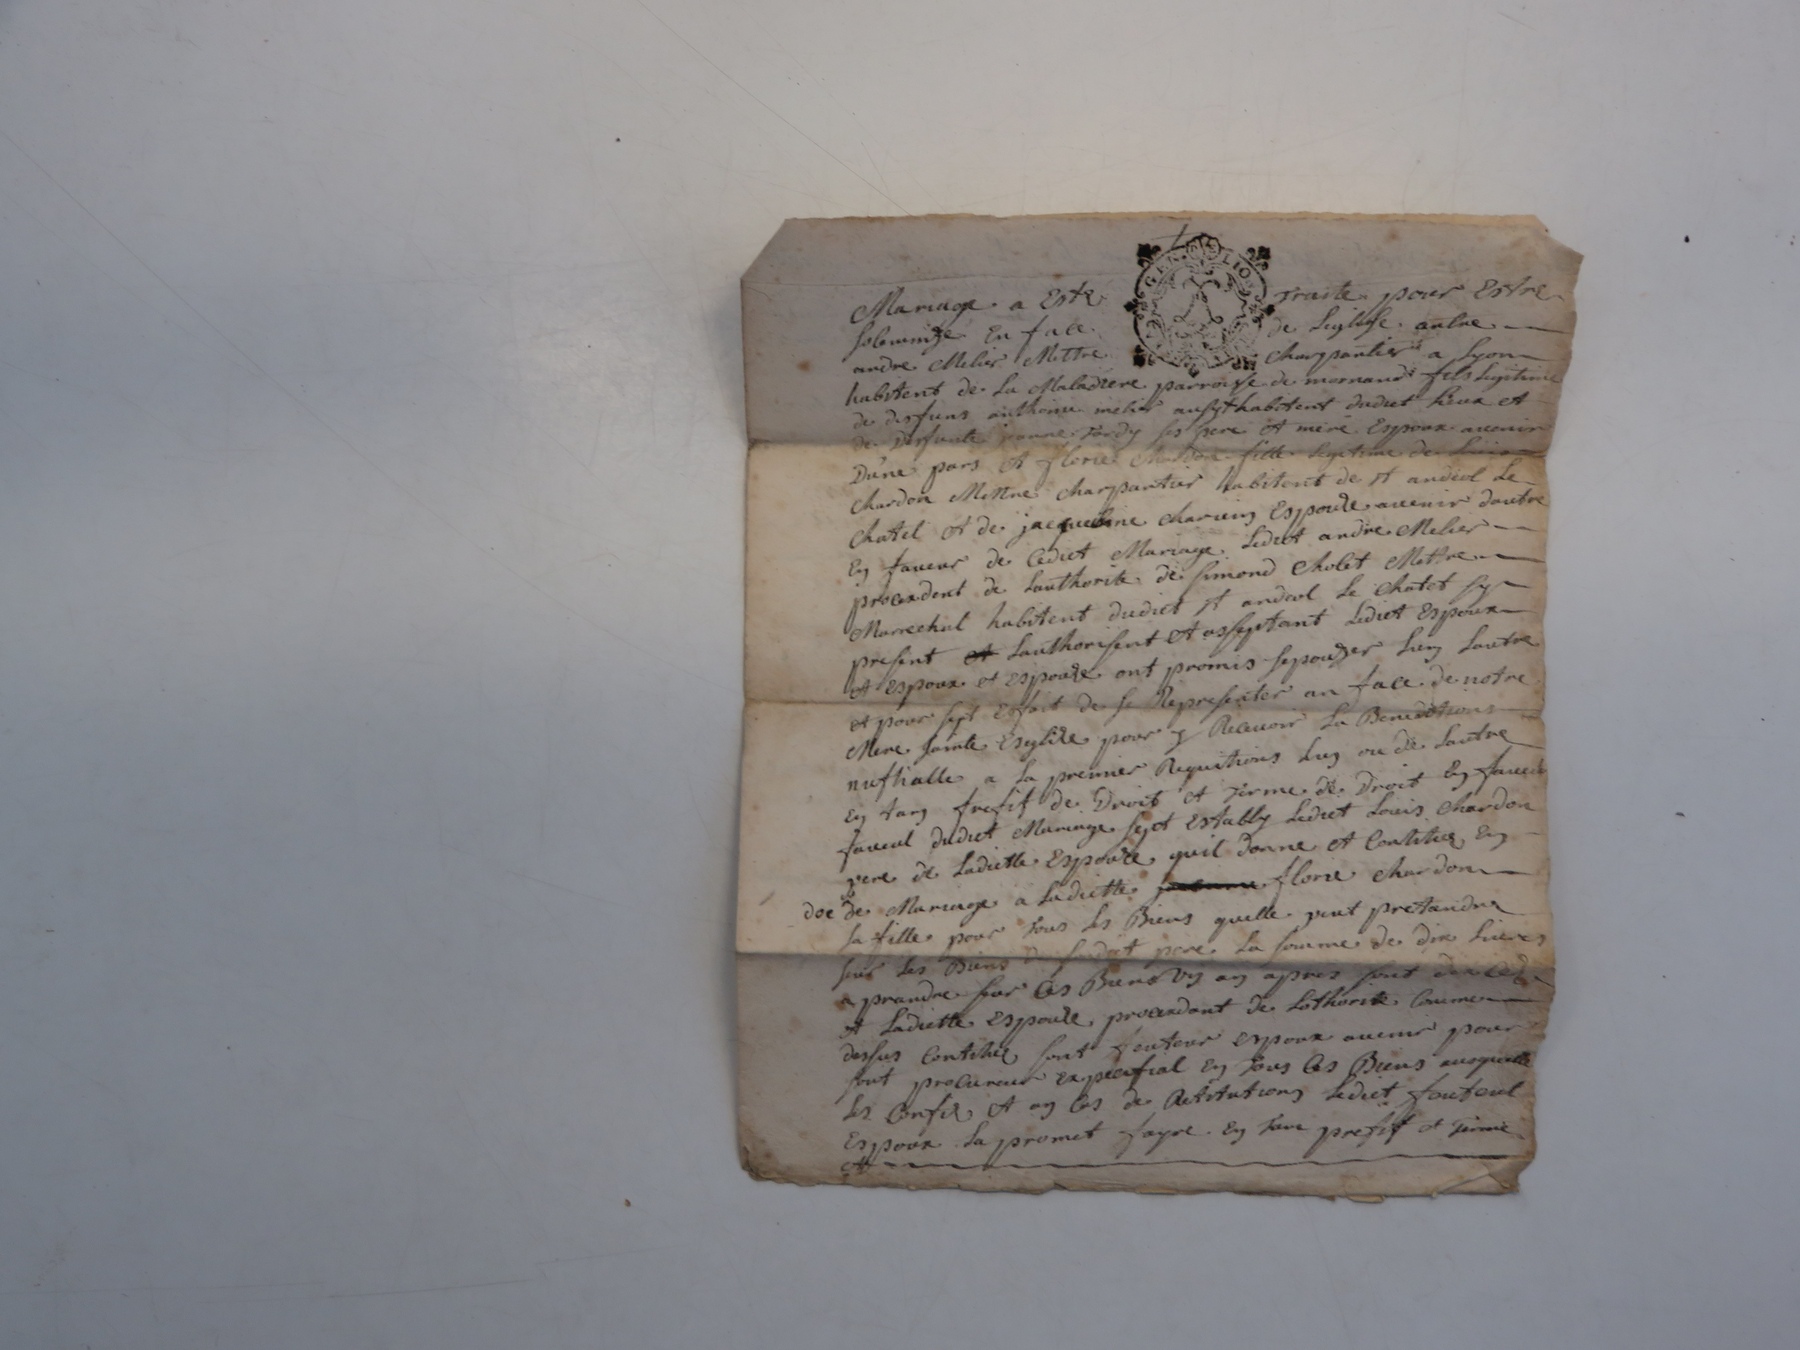 GEN. LION
Mariage a Este traite pour Estre
solemnize En face de Leglise antre
andre Melier Mettre charpantier a Lyon
habitent de La Maladiere parroisse de mornand fils Legitime
de deffuns anthoine melier aussy habitent dudict lieux et
de deffunte jeanne Tardy ses pere et mere Espoux avenir
Dune pars et florie chardon fille Legitime de Louis
chardon Mettre charpantier habitent de st andeol Le
chatel et de jacqueline Espouze avenir dautre
En faveur de Cedict Mariage Ledict andre Melier
procedent de Lauthorite de simond cholet Mettre
Marrechal habitent dudict st andeol Le chatel sy
present et Lauthorisent et asseptant Ledict Espoux
et espoux et espouze ont promis sepouzer Lung Lautre
et pour sept Effait de se Representer an face de notre
Mere sainte Esglize pour y Recevoir La Benedtions
nuptialle a La premier Requitions Lung ou de Lautre
En tans prefif de Droit et terme de Droit En faveur
faveul dudict Mariage sept Estably Ledict Louis chardon
pere de Ladictte Espouze quil donne et Contitue En
doe de Mariage a Ladictte florie chardon
sa fille pour tous Les Biens quelle peut pretandre
sur Les Biens sudict pere La somme de dix Livres
a prandre sur Ces Biens ung an apres sont
et Ladictte Espouze procedant de Lothorite Comme
dessus Contitue sont feuteur espoux avenir pour
sont procureur expecial En tous Ces Biens ausquelle
Les Confie et an Cas de Retitutions Ledict feuteul
Espoux La promet fayre En tans prefif et terme
et